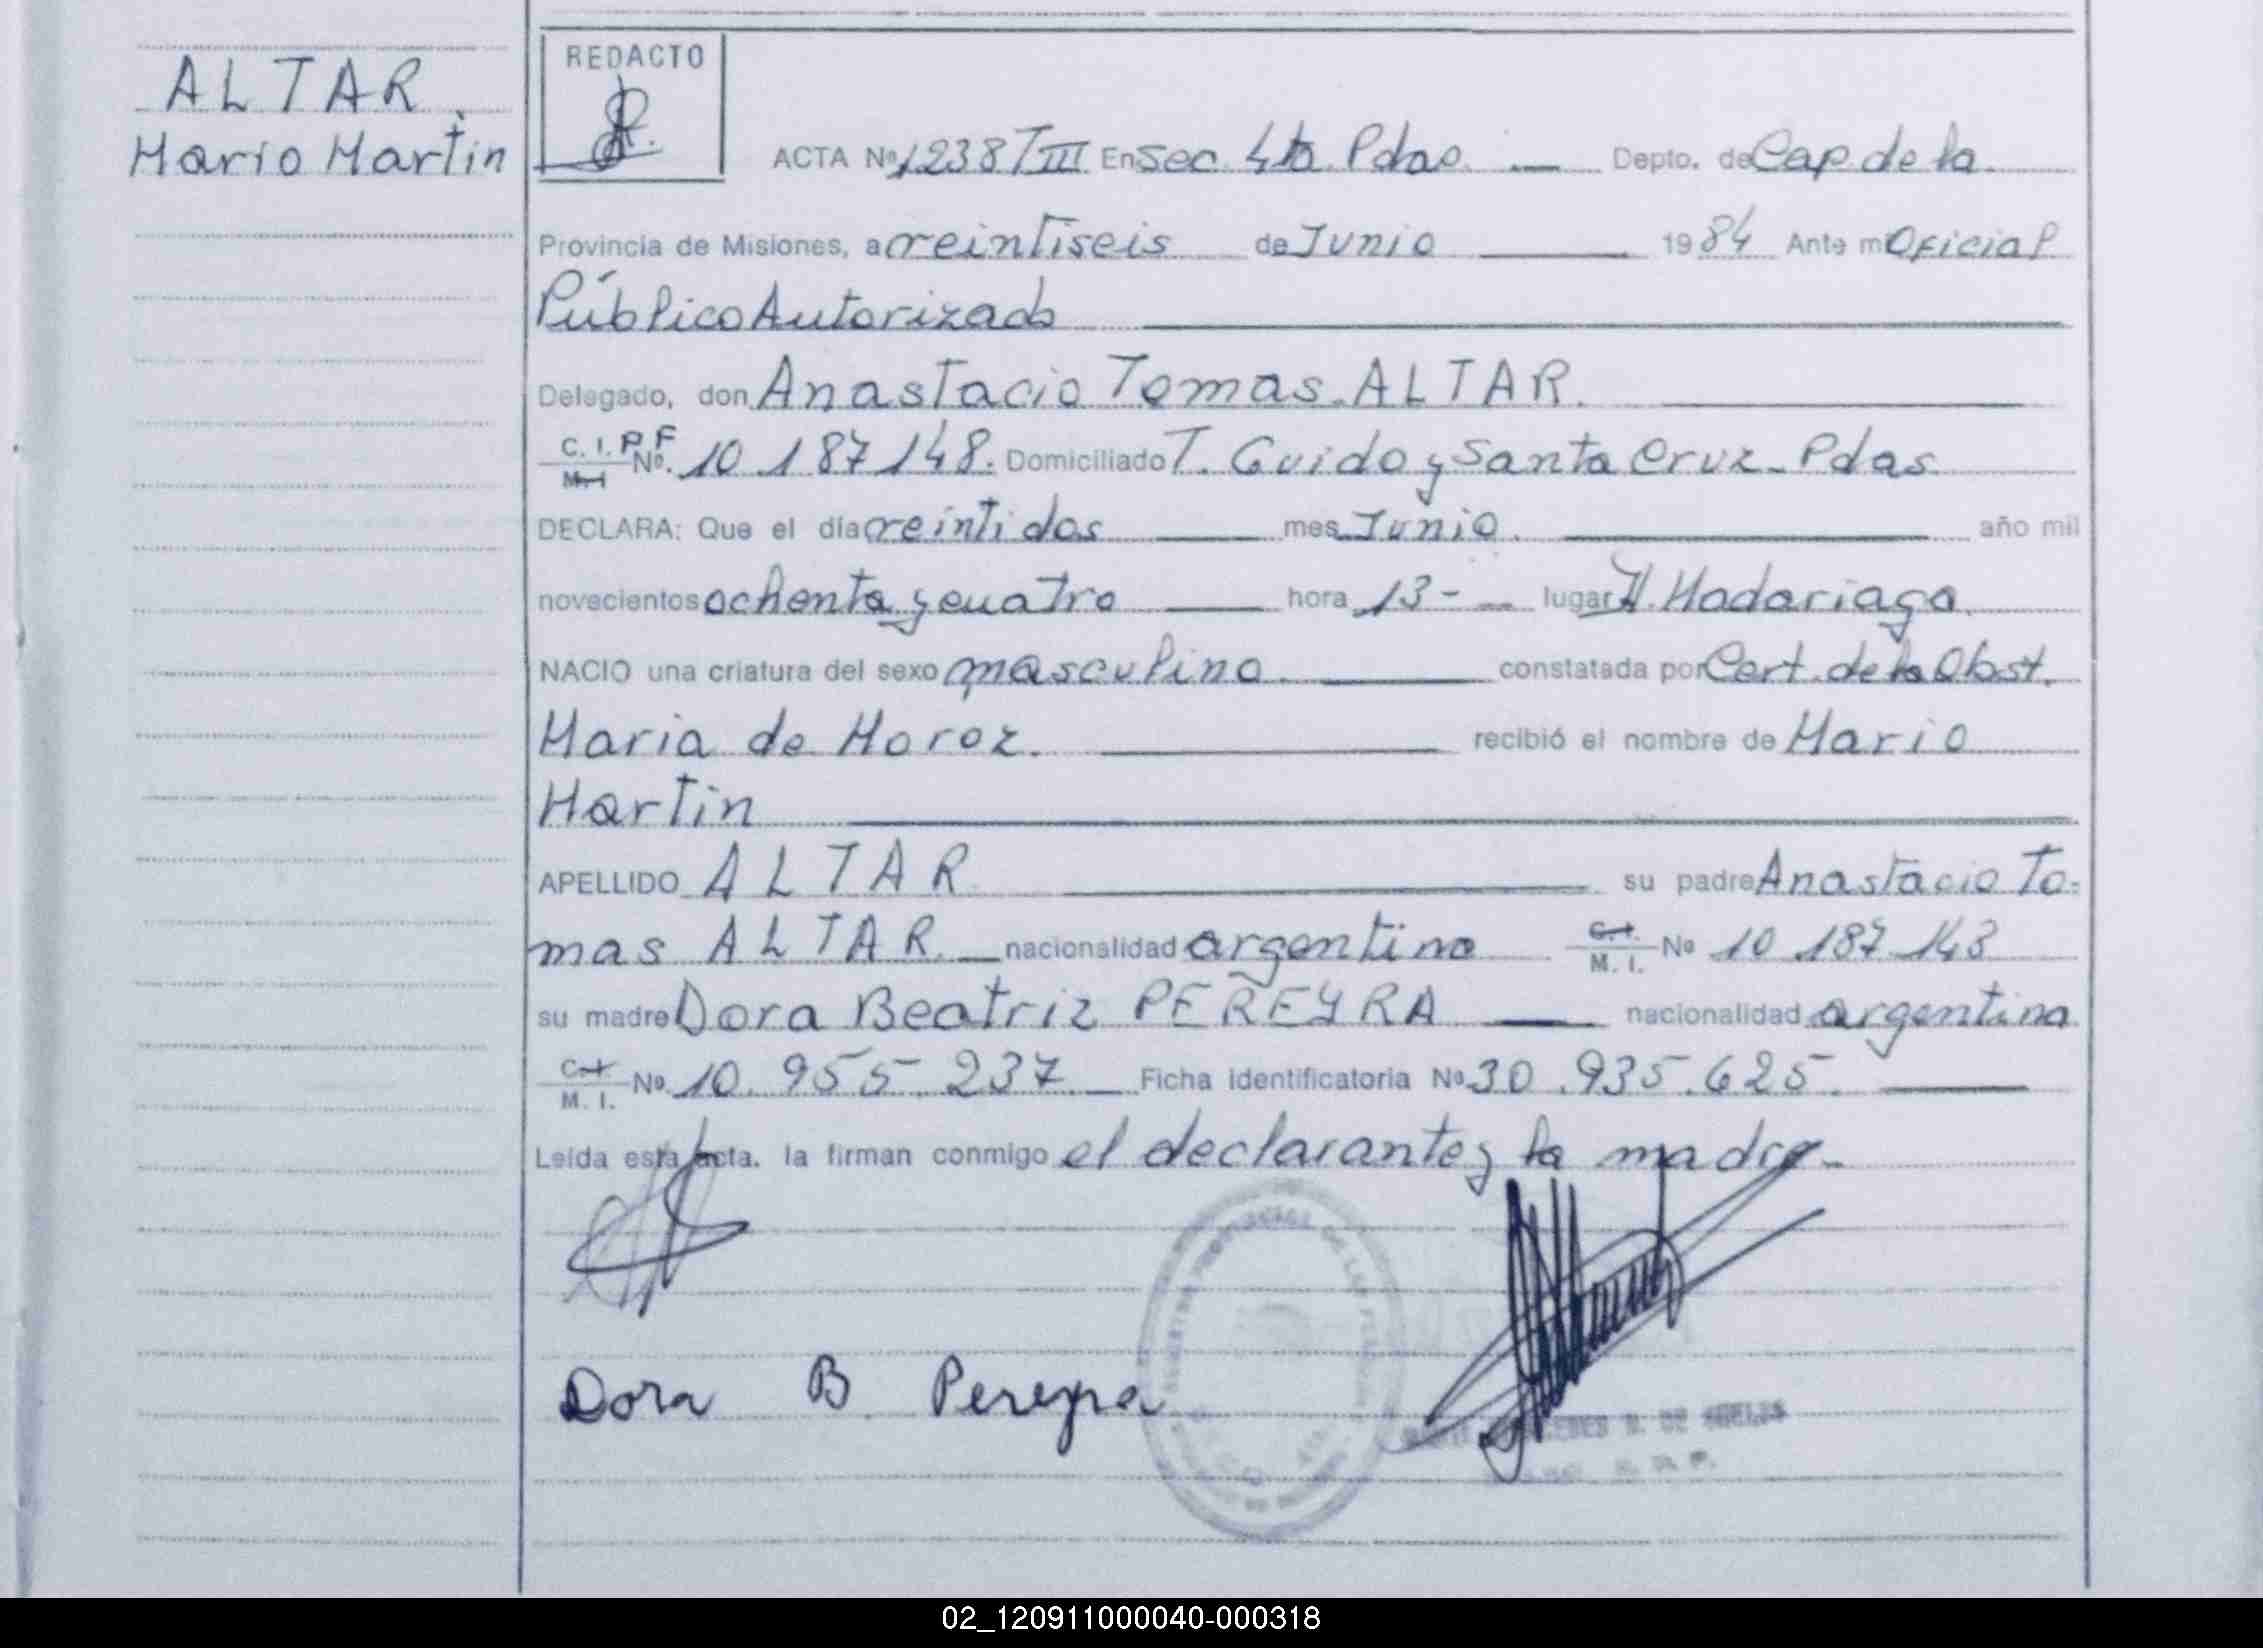 ALTAR
Mario Martin
REDACTO
ACTA Nº 1238 T III En Sec. 4ta Pdas. Depto. de Cap. de la
Provincia de Misiones, a veintiseis de Junio 1984 Ante mi Oficial
Público Autorizado
Delegado, don Anastacio Tomas ALTAR.
C. I. P F
M. I Nº. 10 187 148. Domiciliado T. Guido y Santa Cruz - Pdas
DECLARA: Que el día veinti dos mes Junio. año mil
novecientos ochenta y cuatro hora 13 - lugar H. Madariaga.
NACIO una criatura del sexo masculino. constatada por Cert. de la Obst.
Maria de Moroz. recibió el nombre de Mario
Martin
APELLIDO ALTAR su padre Anastacio To-
mas ALTAR. nacionalidad argentina C. I. M. I. Nº 10 187 143
su madre Dora Beatriz PEREYRA nacionalidad argentina
C. I. M. I. Nº 10. 955 237 Ficha identificatoria Nº 30.935.625.
Leída esta acta. la firman conmigo el declarante y la madre -
Dora B. Pereyra
02_120911000040-000318